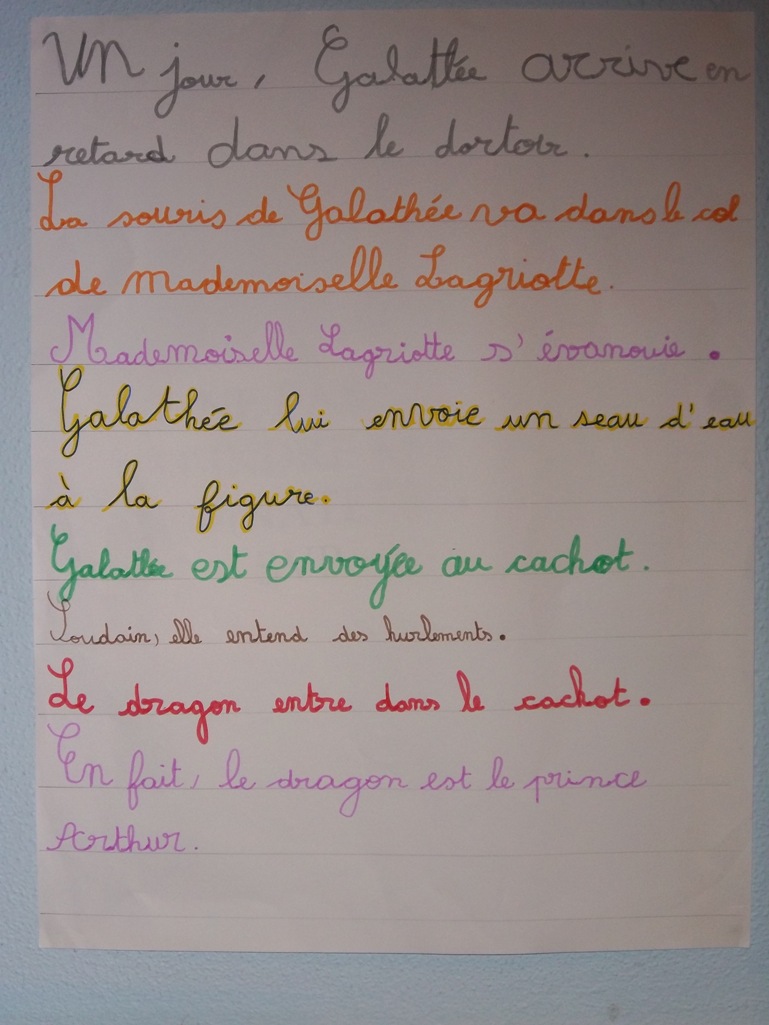 Un jour, Galathée arrive en
retard dans le dortoir.
La souris de Galathée va dans le col
de mademoiselle Lagriotte.
Mademoiselle Lagriotte s'évanouie.
Galathée lui envoie un seau d'eau
à la figure.
Galathée est envoyée au cachot.
Soudain, elle entend des hurlements.
Le dragon entre dans le cachot.
En fait, le dragon est le prince
Arthur.